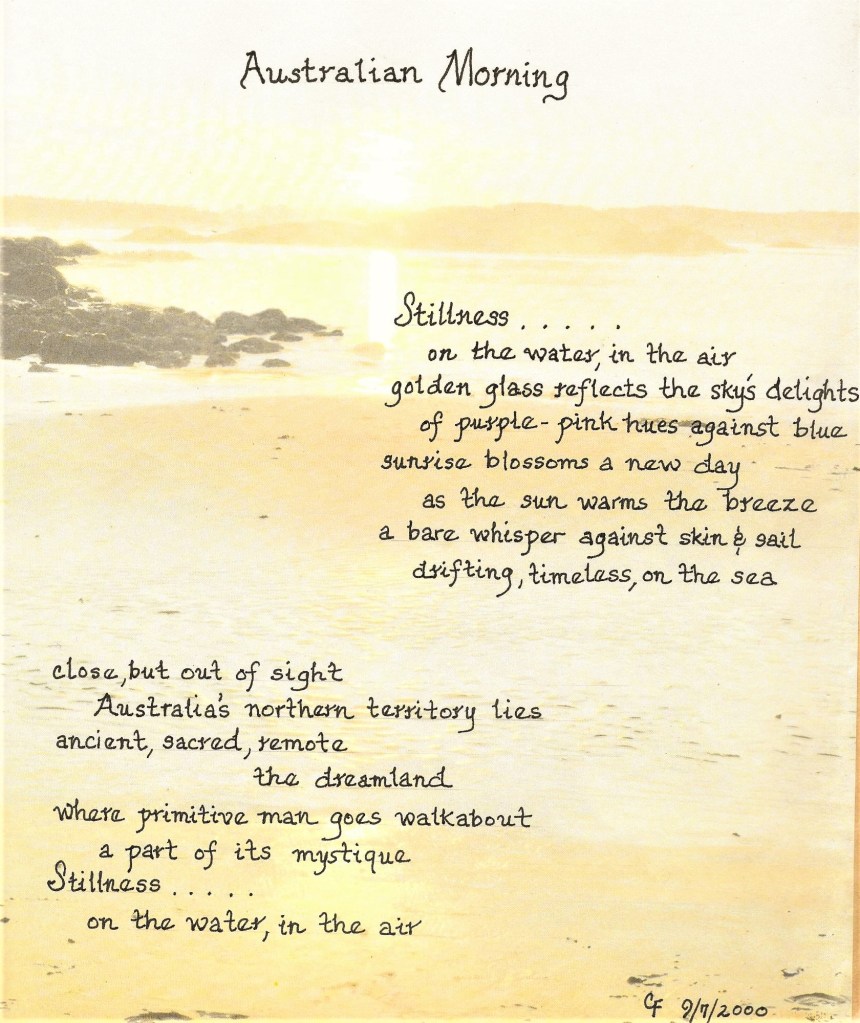 Australian Morning
Stillness . . . . .
on the water, in the air
golden glass reflects the sky's delights
of purple-pink hues against blue
sunrise blossoms a new day
as the sun warms the breeze
a bare whisper against skin & sail
drifting, timeless, on the sea
close, but out of sight
Australia's northern territory lies
ancient, sacred, remote
the dreamland
where primitive man goes walkabout
a part of its mystique
Stillness . . . . .
on the water, in the air
CF 9/7/2000